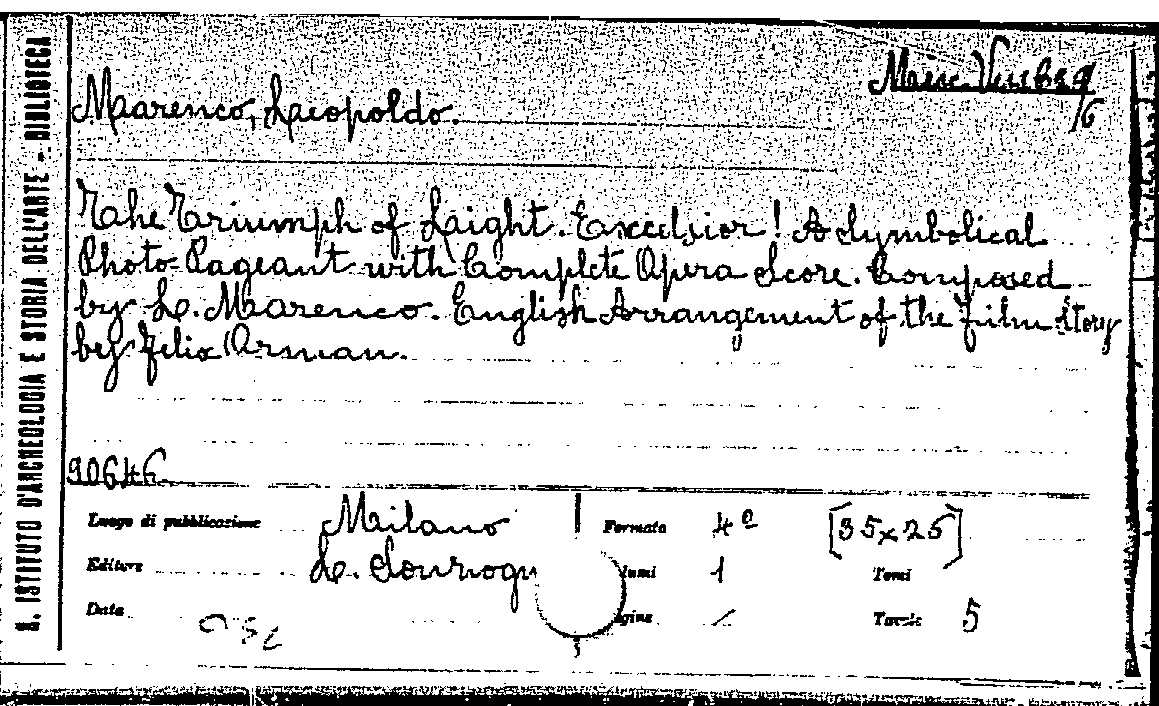 R. ISTITUTO D'ARCHEOLOGIA E STORIA DELL'ARTE - BIBLIOTECA
/6
Maarenco, Laeopoldo.
Tahe Triumph of Laight. Excelsior! A Symbolical
Photo-Pageant with Complete Opera Score. Composed
by L. Marenco. English Arrangement of the film story
by Felix Orman.
90646
Luogo di pubblicazione Milano Formato 4° [35x25]
Editore L. Sonzogn lumi 1 Tomi
Data gine / Tavole 5